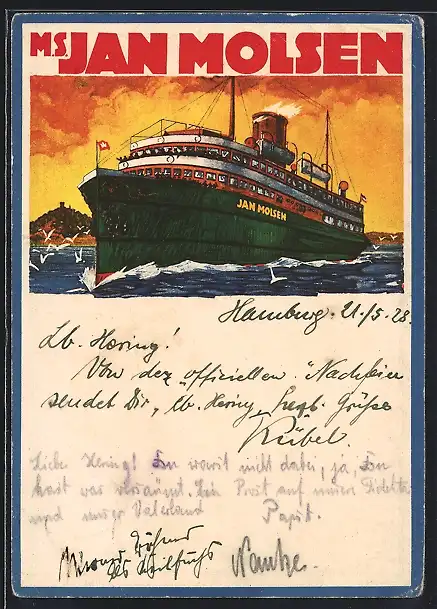 MS. JAN MOLSEN
JAN MOLSEN
Hamburg. 21./5. 28.
Lb. Hering!
Von der "officiellen" Nachfeier
sendet Dir, lb. Hering, Grüße
Kübel
Liebe Hering! Du warst nicht dabei, ja, Du
hast was versäumt. Ein Prost auf unsere Fidelitas
und unser Vaterland
Papst.
des
Nautze.